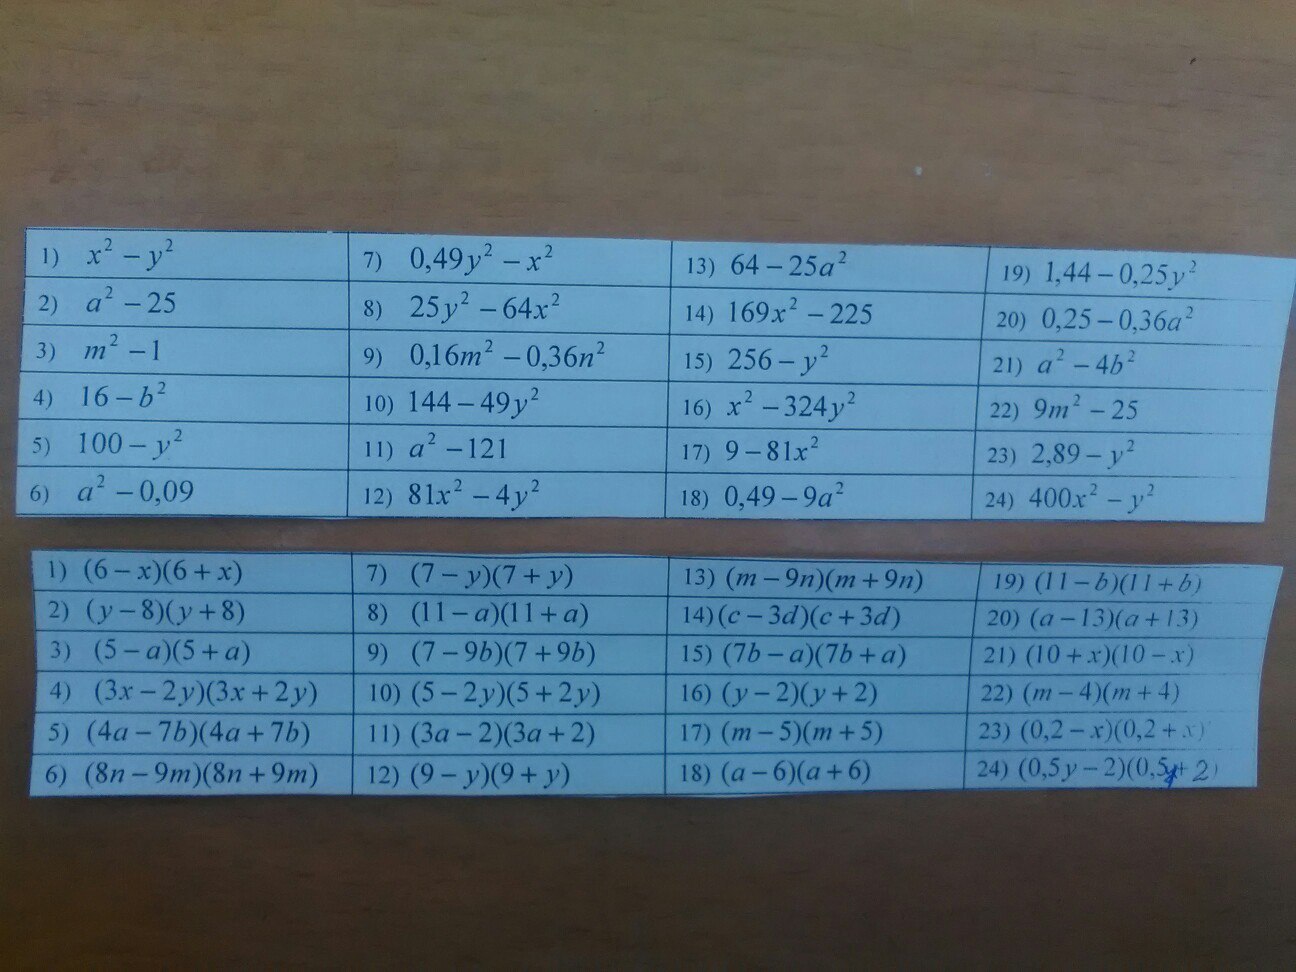 1) x² − y² 7) 0,49y² − x² 13) 64 − 25a² 19) 1,44 − 0,25y²
2) a² − 25 8) 25y² − 64x² 14) 169x² − 225 20) 0,25 − 0,36a²
3) m² − 1 9) 0,16m² − 0,36n² 15) 256 − y² 21) a² − 4b²
4) 16 − b² 10) 144 − 49y² 16) x² − 324y² 22) 9m² − 25
5) 100 − y² 11) a² − 121 17) 9 − 81x² 23) 2,89 − y²
6) a² − 0,09 12) 81x² − 4y² 18) 0,49 − 9a² 24) 400x² − y²
1) (6 − x)(6 + x) 7) (7 − y)(7 + y) 13) (m − 9n)(m + 9n) 19) (11 − b)(11 + b)
2) (y − 8)(y + 8) 8) (11 − a)(11 + a) 14) (c − 3d)(c + 3d) 20) (a − 13)(a + 13)
3) (5 − a)(5 + a) 9) (7 − 9b)(7 + 9b) 15) (7b − a)(7b + a) 21) (10 + x)(10 − x)
4) (3x − 2y)(3x + 2y) 10) (5 − 2y)(5 + 2y) 16) (y − 2)(y + 2) 22) (m − 4)(m + 4)
5) (4a − 7b)(4a + 7b) 11) (3a − 2)(3a + 2) 17) (m − 5)(m + 5) 23) (0,2 − x)(0,2 + x)
6) (8n − 9m)(8n + 9m) 12) (9 − y)(9 + y) 18) (a − 6)(a + 6) 24) (0,5y − 2)(0,5y + 2)